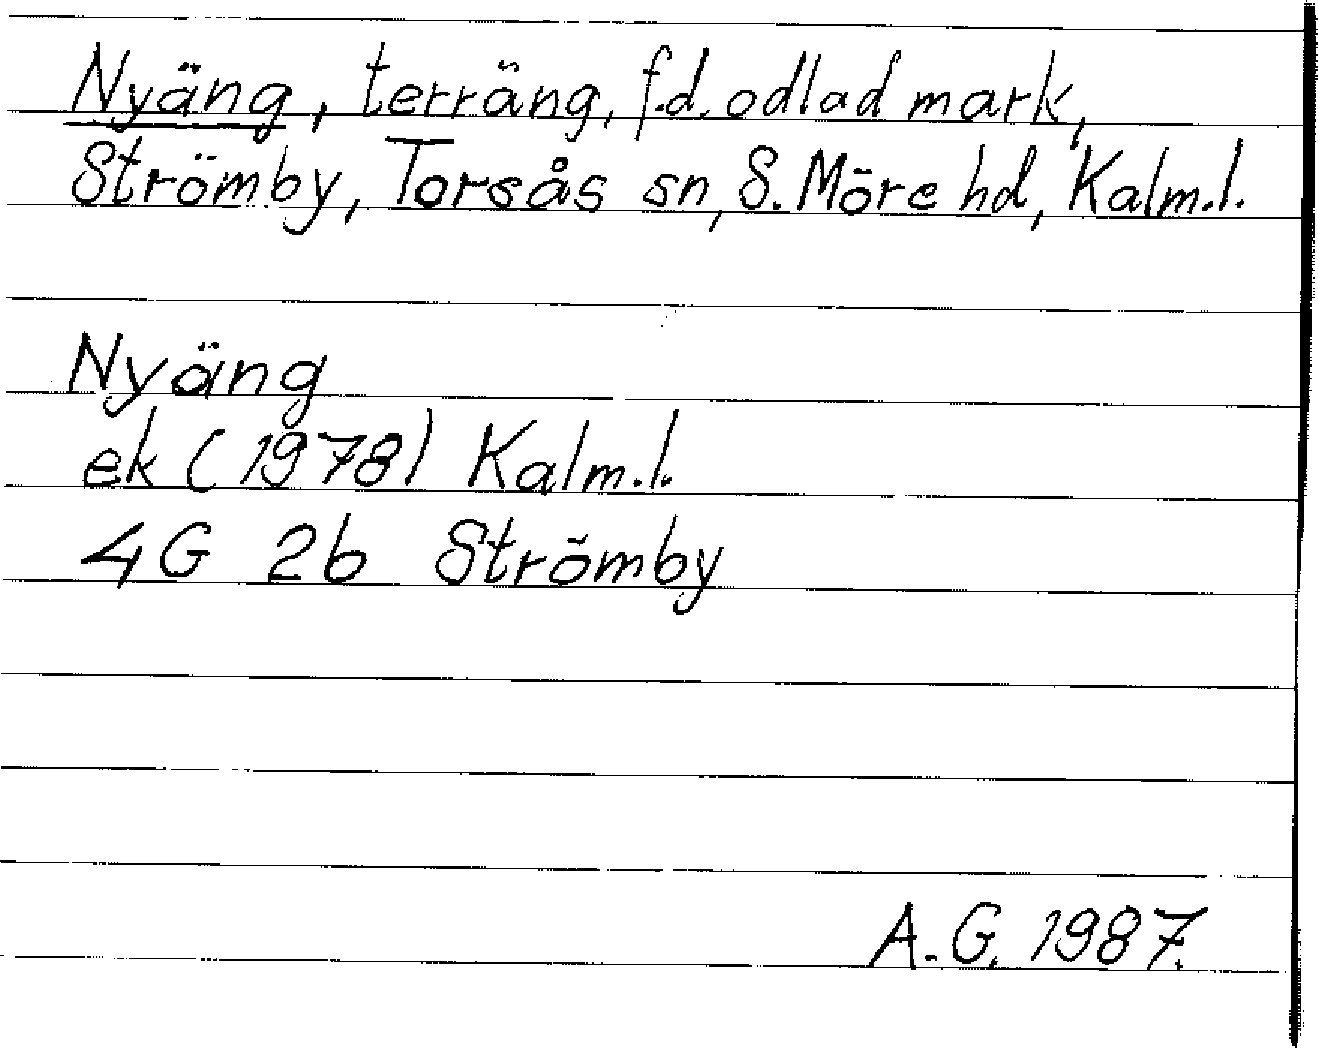 Nyäng, terräng, f.d. odlad mark,
Strömby, Torsås sn, S. Möre hd, Kalm.l.
Nyäng
ek (1978) Kalm.l.
4G 2b Strömby
A.G. 1987.